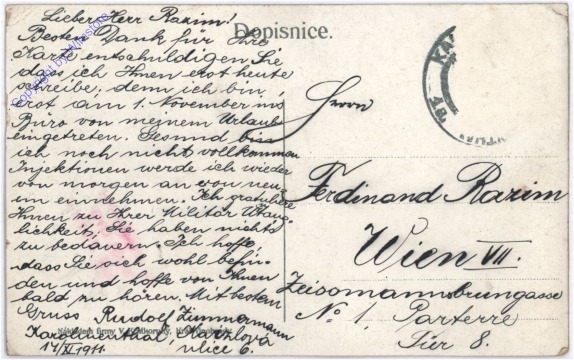 Dopisnice.
Lieber Herr Razim!
Besten Dank für Ihre
Karte entschuldigen Sie
dass ich Ihnen erst heute
schreibe, denn ich bin
erst am 1. November ins
Büro von meinem Urlaub
eingetreten. Gesund bin
ich noch nicht vollkommen
Injektionen werde ich wieder
von morgen an von neu-
em einnehmen. Ich gratuliere
Ihnen zu Ihrer Militär Utaug-
lichkeit, Sie haben nichts
zu bedauern. Ich hoffe,
dass Sie sich wohl befin-
den und hoffe von Ihnen
bald zu hören. Mit bestem
Gruss Rudolf Zimmermann
Karolinenthal,
ulice 6.
17/XI 1911.
Herrn
Ferdinand Razim
Wien VII.
Zeismannsbrungasse
No 1 Parterre
Tier 8.
Nákladem firmy V.
Copyright by